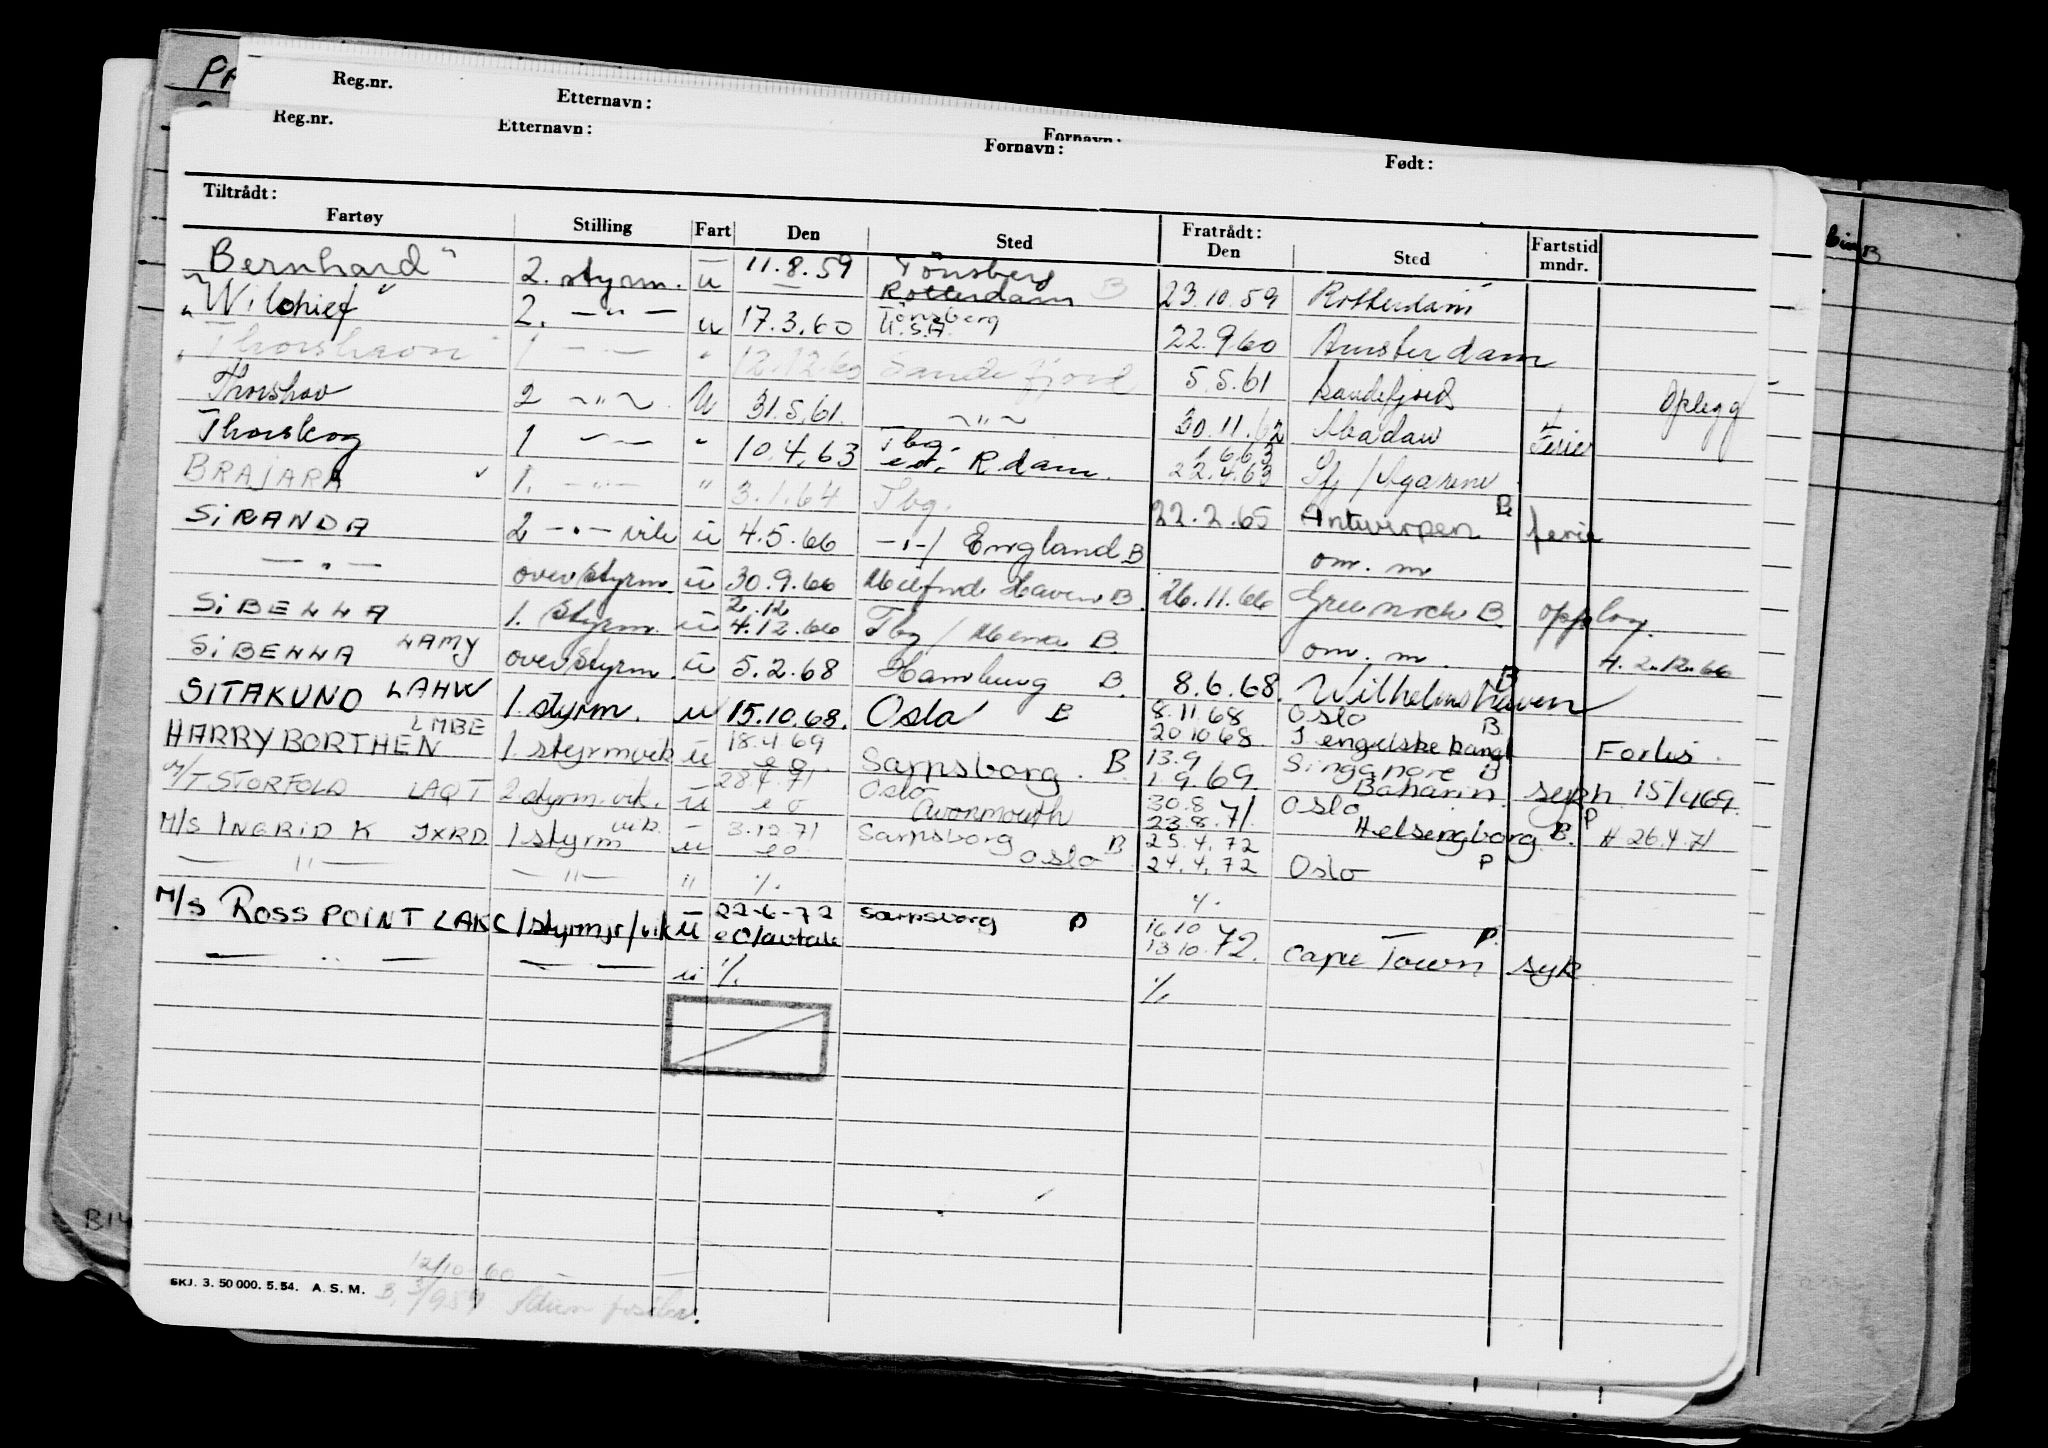 Reg.nr. Etternavn: Fornavn:
Reg.nr. Etternavn: Fornavn: Født:
Tiltrådt: Fratrådt:
Fartøy Stilling Fart Den Sted Den Sted Fartstid mndr.
"Bernhard" 2. styrm. u 11.8.59 Tønsberg Rotterdam B 23.10.59 Rotterdam
"Wilchief" 2. -"- u 17.3.60 Tönsberg U.S.A. 22.9.60 Amsterdam
"Thorshavn" 1 -"- " 12.12.60 Sandefjord 5.5.61 Sandefjord Oplegg
Thorshov 2 -"- U 31.5.61. -"- 30.11.62 Abadan Ferie
Thorskog 1 -"- " 10.4.63 Tbg. R.dam. 1.6.63 22.4.63 Sfj /
BRAJARA 1. -"- " 3.1.64 Tbg. 22.2.65 Antwerpen B ferie
SIRANDA 2 -"- vik u 4.5.66 -"-/ England B om. m
-"- overstyrm. u 30.9.66 Milford Haven B. 26.11.66 Greenock B opplag.
SIBELLA 1. Styrm. u 2.12 4.12.66 Tbg / Mena B om. m. H. 2.12.66
SIBELLA LAMY overstyrm. u 5.2.68 Hamburg B. 8.6.68. Wilhelmshaven B
SITAKUND LAHW 1. styrm. u 15.10.68. Oslo B 8.11.68 20.10.68 Oslo B I engelske kanal Forlis.
HARRY BORTHEN LMBE 1. styrm vik u 18.4.69 e o Sarpsborg. B 13.9 1.9.69. Singapore B Baharin. 15/4 69.
M/T STORFOLD LAQT 2 styrm. vik. u 28.4.71 e o Oslo Avonmouth 30.8 23.8.71. Oslo P Helsengborg B. H 26.4.71
M/S INGRID K JXRD 1 styrm vik. u 3.12.71 e o Sarpsborg B Oslo 25.4.72 24.4.72 Oslo P
-"- -"- " %. %.
M/S ROSS POINT LAKC 1 styrm jr/vik u 22-6-72 e o/avtale Sarpsborg P 16.10 13.10.72. - P. Cape Town syk
-"- -"- u %. %.
B14
12/10-60
B. 3/9 59
SKJ. 3. 50 000. 5. 54. A. S. M.